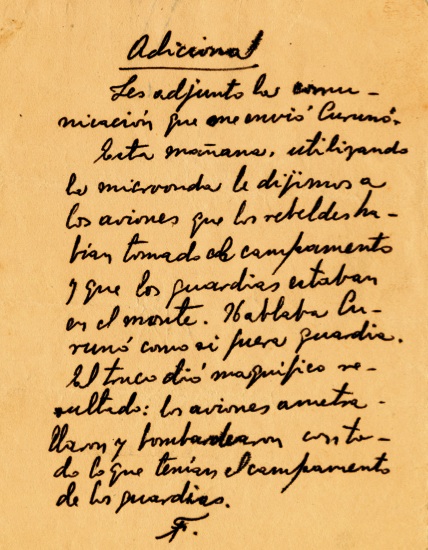 Adicional
Les adjunto la comu-
nicación que me envió Curunó.
Esta mañana, utilizando
la microonda le dijimos a
los aviones que los rebeldes ha-
bían tomado el campamento
y que los guardias estaban
en el monte. Hablaba Cu-
runó como si fuera guardia.
El truco dió magnífico re-
sultado: los aviones ametra-
llaron y bombardearon con to-
do lo que tenían el campamento
de los guardias.
F.